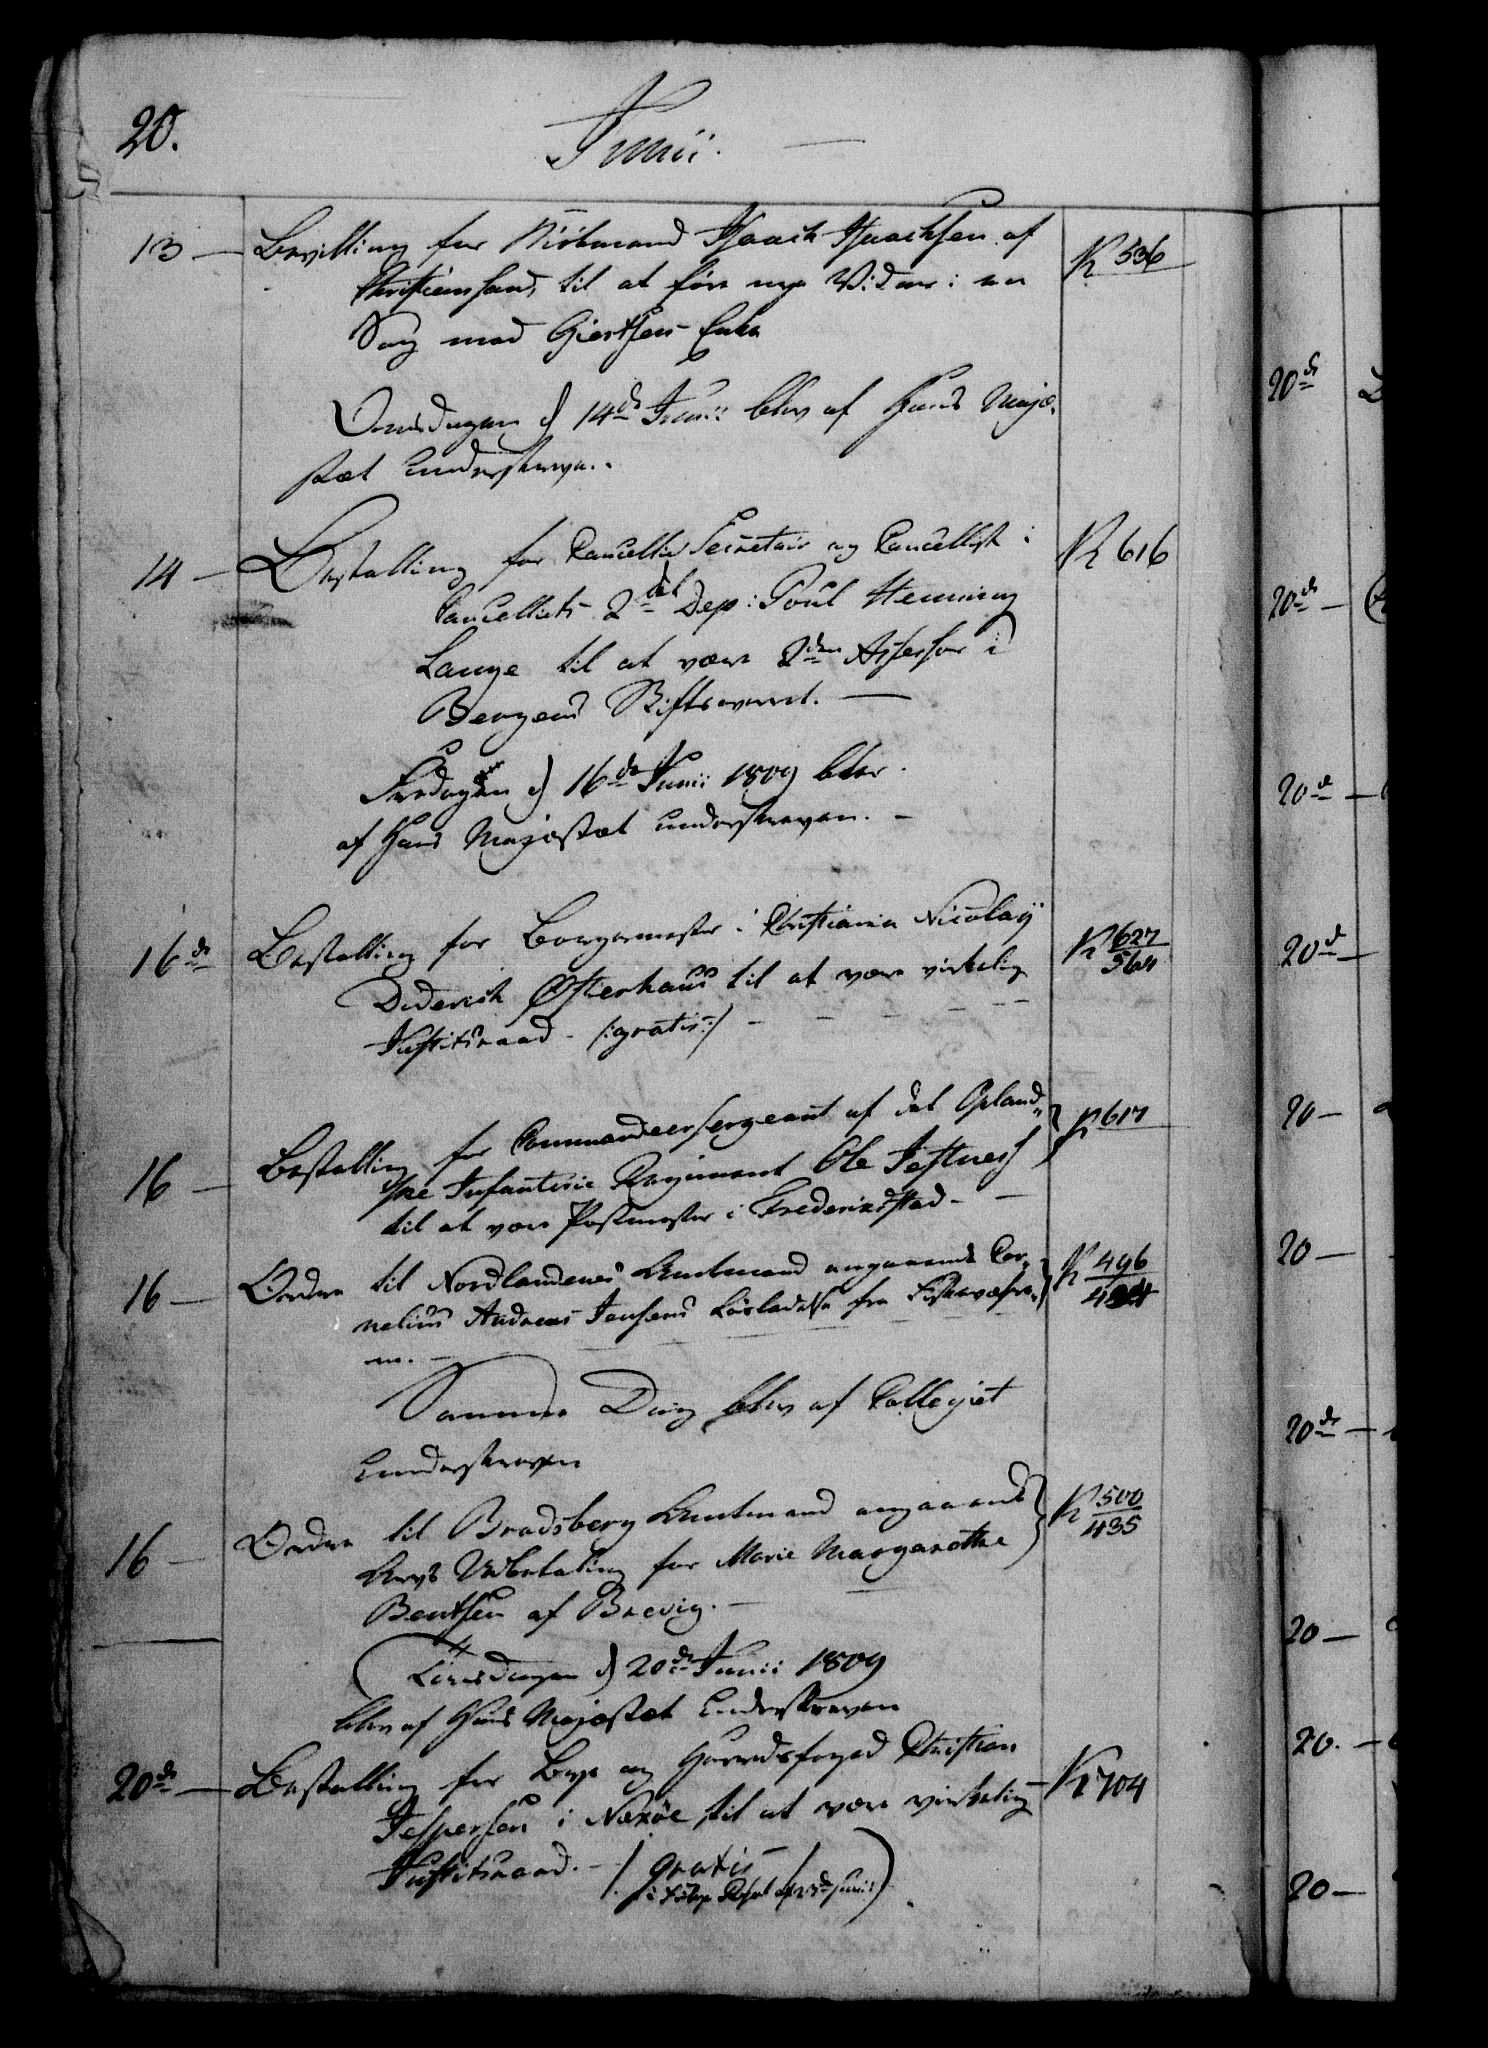 20.
Junii.
13 — Bevilling for Kiöbmand Isaach Isaachsen af
Christiansand, til at före nye Vidner i en
Sag mod Giertsens Enke
K 536
Onsdagen d 14de Junii blev af Hans Maje-
stæt underskreven.
14 — Bestalling for Cancellie Secretair og Cancellist i
Cancelliets 2det Dep: Poul Henning
Lange til at være 2den Assessor i
Bergens Stiftsoverret. —
K 616
Fredagen d 16de Junii 1809 blev
af Hans Majestæt underskreven. —
16de Bestalling for Borgermester i Christiania Nicolay
Diderich Østierhaus til at være virkelig
Justitsraad - /:gratis:/ —
K 627
564
16 — Bestalling for Commandeersergeant af det Opland-
ske Infanterie Regiment Ole
til at være Postmester i Frederikstad —
K 617
16 — Ordre til Nordlandenes Amtmand angaaende Cor-
nelius Andreas Jensens Lösladelse fra
m. —
K 496
Samme Dag blev af Collegiet
underskreven
16 — Ordre til Bradsberg Amtmand angaaende
Arvs Udbetaling for Marie Margarethe
Bentsen af Brevig. —
K 500
435
Tirsdagen d 20de Junii 1809
blev af Hans Majestæt underskreven
20de — Bestalling for Bye og Herredsfoged Christian
Jespersen i Nexöe, til at være virkelig
Justitsraad. — / gratis /
i fölge Resol af 23de Junii
K 704
20de
20de —
20de —
20de —
20 —
20 —
20de —
20 —
20. —
20 —